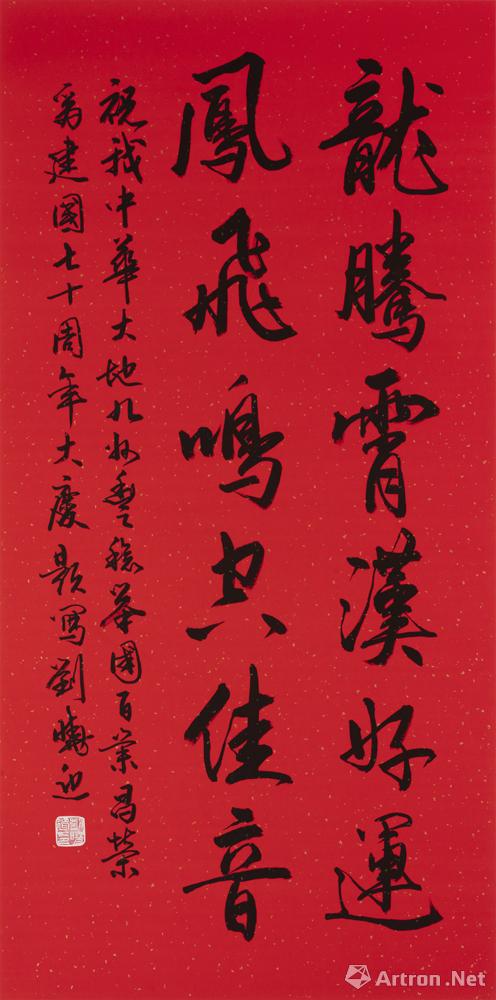 龍騰霄漢好運
鳳飛鳴空佳音
祝我中華大地九州豐稔舉國百業昌榮
為建國七十周年大慶題寫劉曉迎
Artron.Net